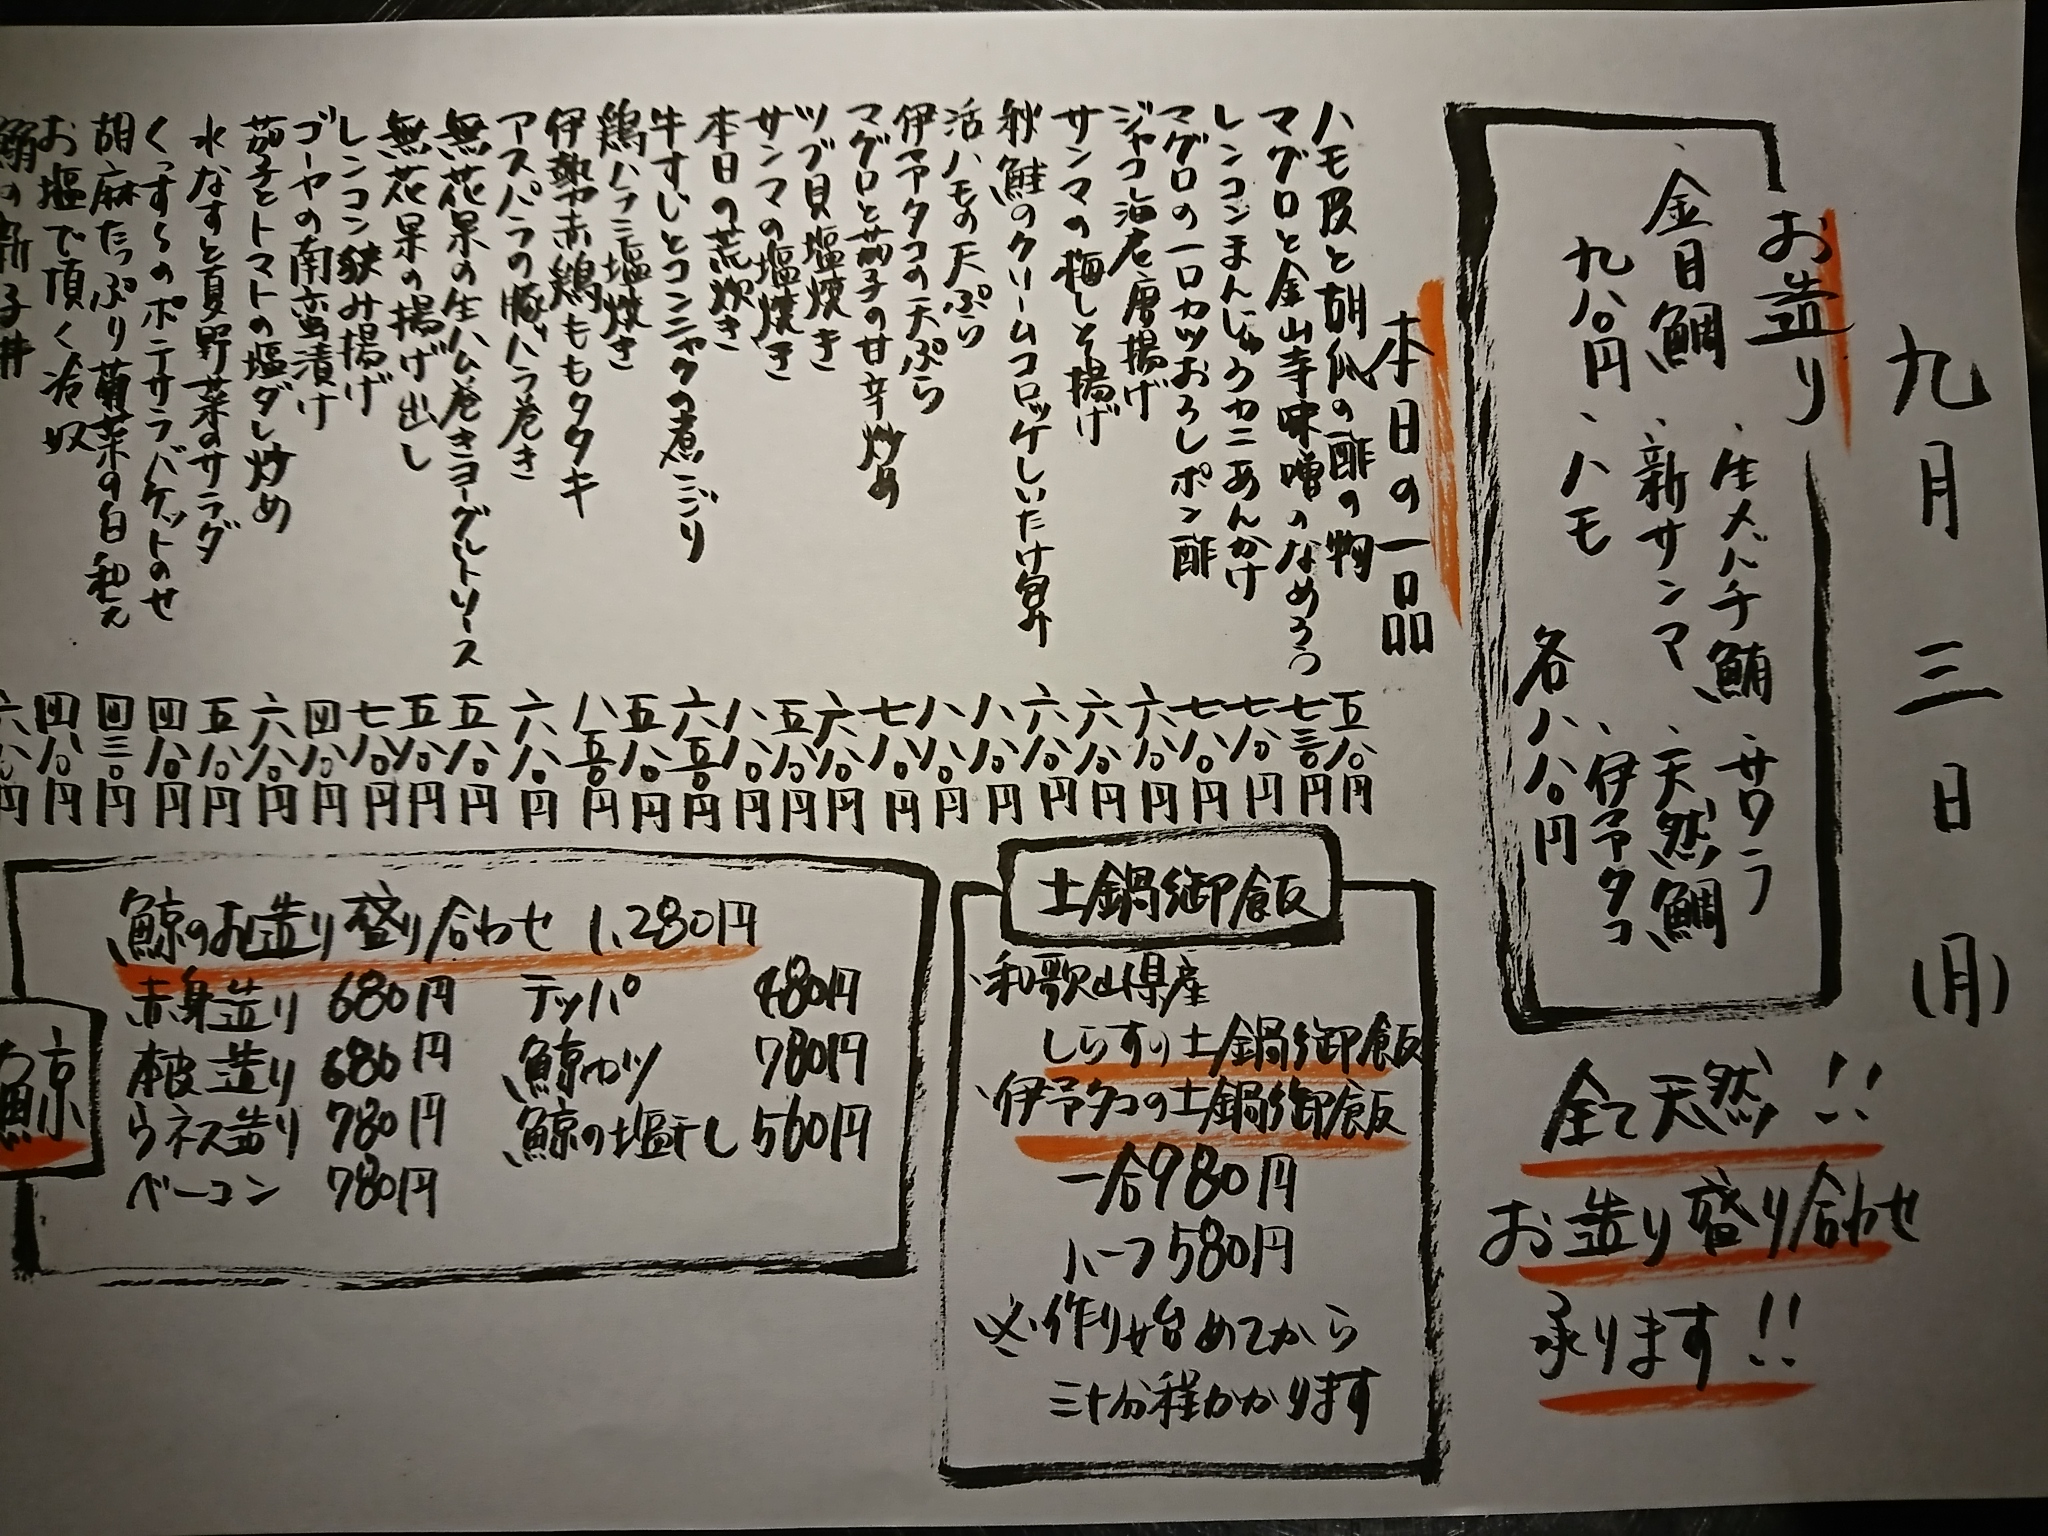 九月三日(月)
お造り
・生メバチ鮪 ・サワラ
・金目鯛 ・新サンマ ・天然鯛
九八〇円 ・ハモ ・伊予タコ
各八八〇円
全て天然!!
お造り盛り合わせ
承ります!!
本日の一品
ハモ皮と胡瓜の酢の物 五八〇円
マグロと金山寺味噌のなめろう 七三〇円
レンコンまんじゅうカニあんかけ 七八〇円
マグロの一口カツおろしポン酢 七八〇円
ジャコ治店唐揚げ 六八〇円
サンマの梅しそ揚げ 六八〇円
秋鮭のクリームコロッケしいたけ包み 六八〇円
活ハモの天ぷら 八八〇円
伊予タコの天ぷら 八八〇円
マグロと茄子の甘辛炒め 七八〇円
ツブ貝塩焼き 六八〇円
サンマの塩焼き 五八〇円
本日の荒炊き 八八〇円
牛すじとコンニャクの煮こごり 六五〇円
鶏ハラミ塩焼き 五八〇円
伊勢赤鶏ももタタキ 八五〇円
アスパラの豚バラ巻き 六八〇円
無花果の生ハム巻きヨーグルトソース 五八〇円
無花果の揚げ出し 五八〇円
レンコン挟み揚げ 七八〇円
ゴーヤの南蛮漬け 四八〇円
茄子とトマトの塩ダレ炒め 六八〇円
水なすと夏野菜のサラダ 五八〇円
くっすらのポテサラバケットのせ 四八〇円
胡麻たっぷり菊菜の白和え 四三〇円
お塩で頂く冷奴 四八〇円
六八〇円
土鍋御飯
・和歌山県産
しらすの土鍋御飯
・伊予タコの土鍋御飯
一合980円
ハーフ580円
※作り始めてから
三十分程かかります
鯨
鯨のお造り盛り合わせ 1,280円
赤身造り 680円 テッパ 480円
本皮造り 680円 鯨カツ 780円
ウネス造り 780円 鯨の塩干し 560円
ベーコン 780円